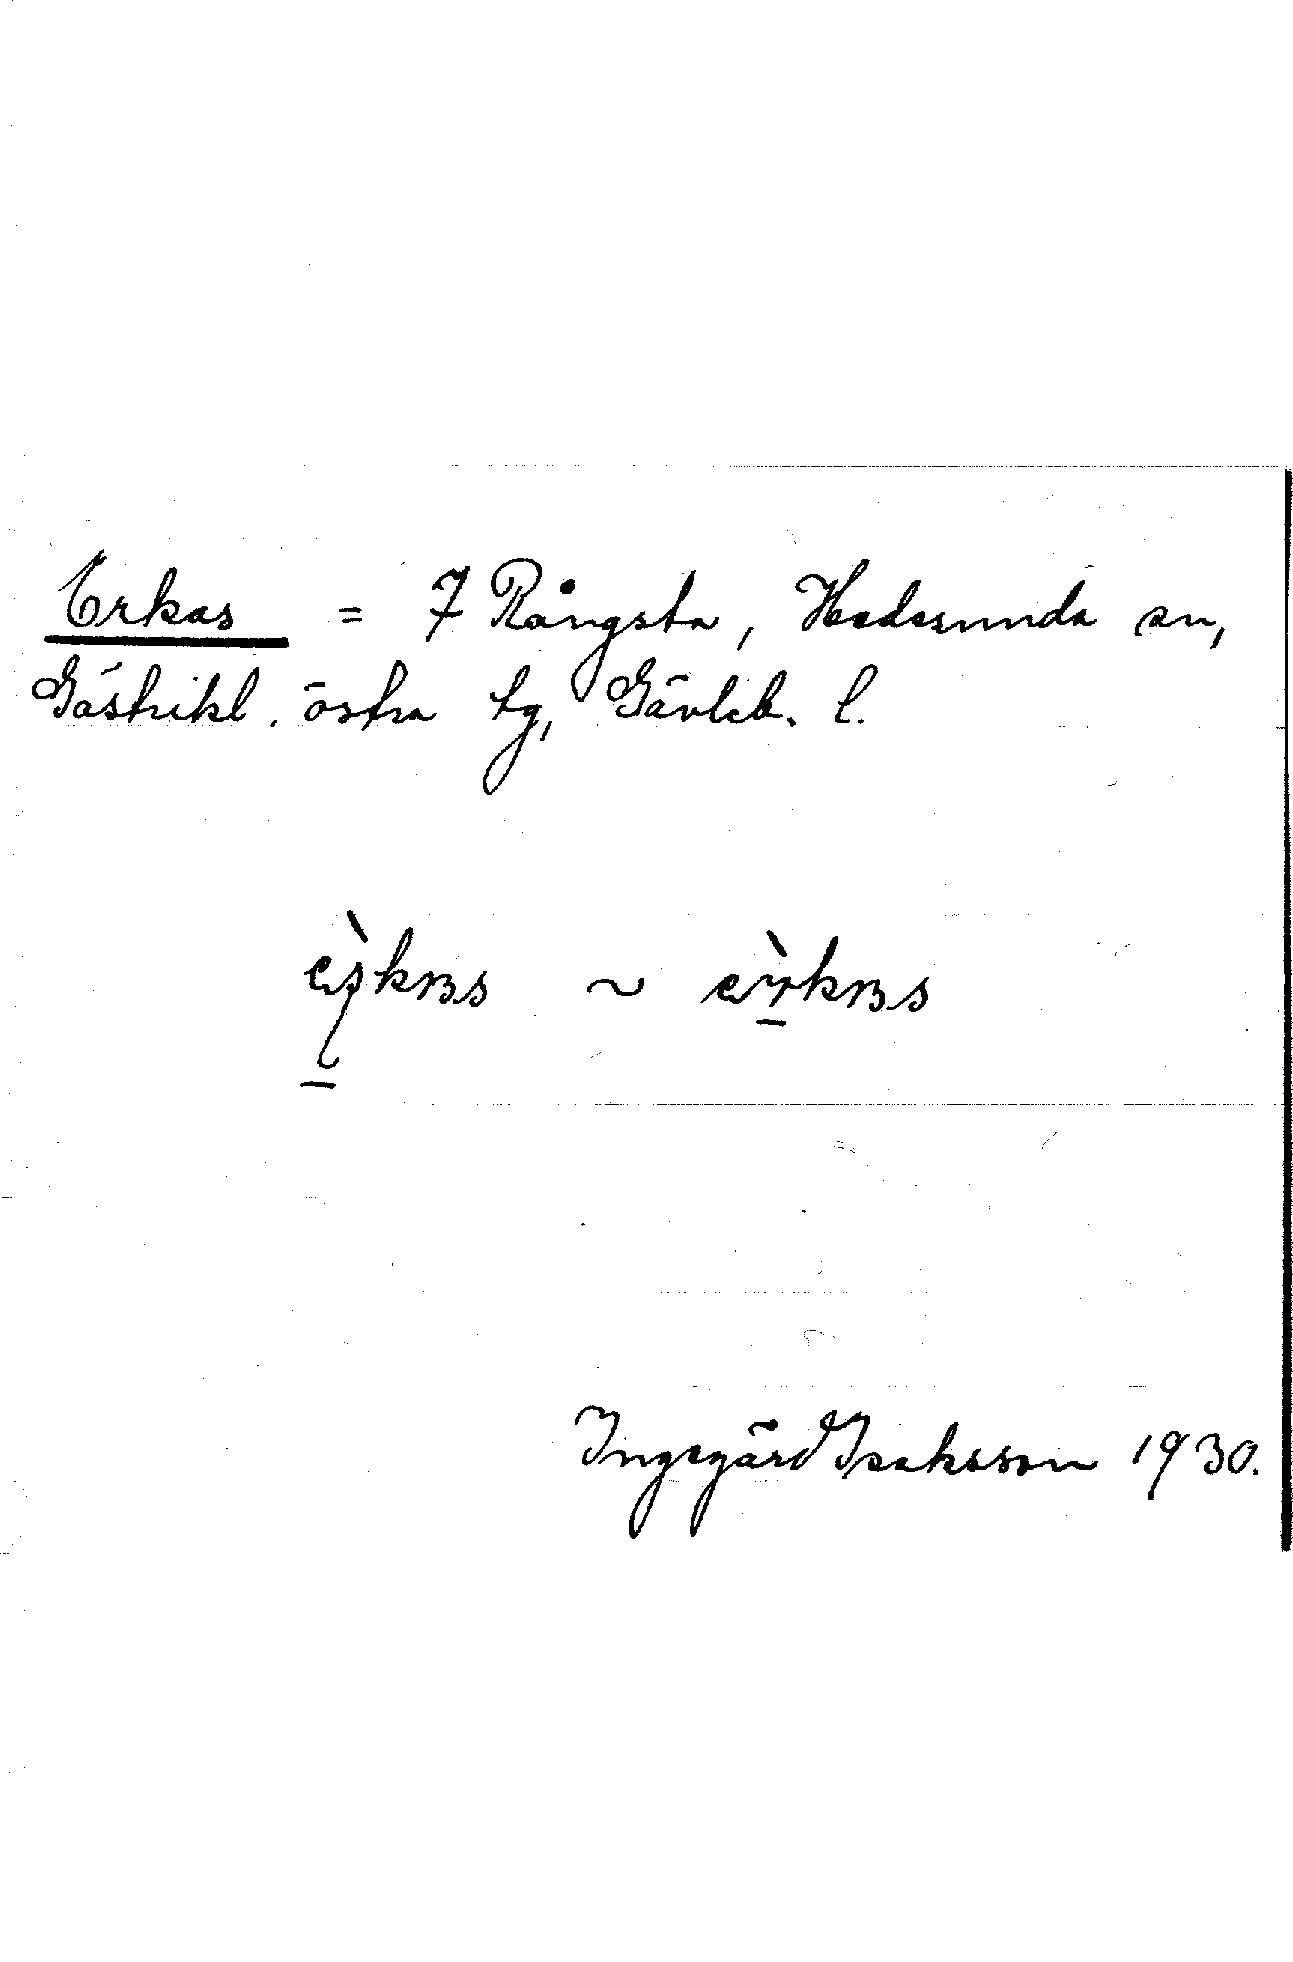 Erkas = 7 Rångsta, Hedesunda sn,
Gästrikl. östra tg, Gävleb. l.
~
Ingegärd Isaksson 1930.